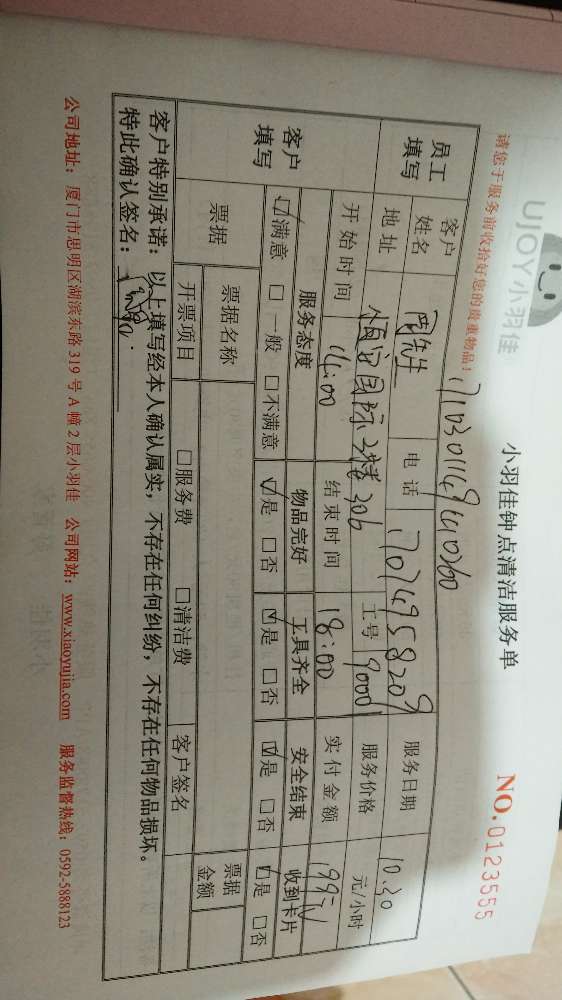 UJOY小羽佳
小羽佳钟点清洁服务单
NO.0123555
请您于服务前收拾好您的贵重物品！
员工填写 客户姓名 周先生 电话 服务日期 10.30
地址 国际 206 工号 9000 服务价格 元/小时
开始时间 14:00 结束时间 18:00 实付金额 199元
客户填写 服务态度 物品完好 工具齐全 安全结束 收到卡片
☑满意 □一般 □不满意 ☑是 □否 ☑是 □否 ☑是 □否 ☑是 □否
票据 票据名称 票据金额
开票项目 □服务费 □清洁费 客户签名
客户特别承诺：以上填写经本人确认属实，不存在任何纠纷，不存在任何物品损坏。
特此确认签名：
公司地址：厦门市思明区湖滨东路319号A幢2层小羽佳 公司网站：www.xiaoyujia.com 服务监督热线：0592-5888123